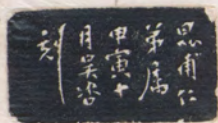 思甫仁
弟属
甲寅十
月吴咨
刻